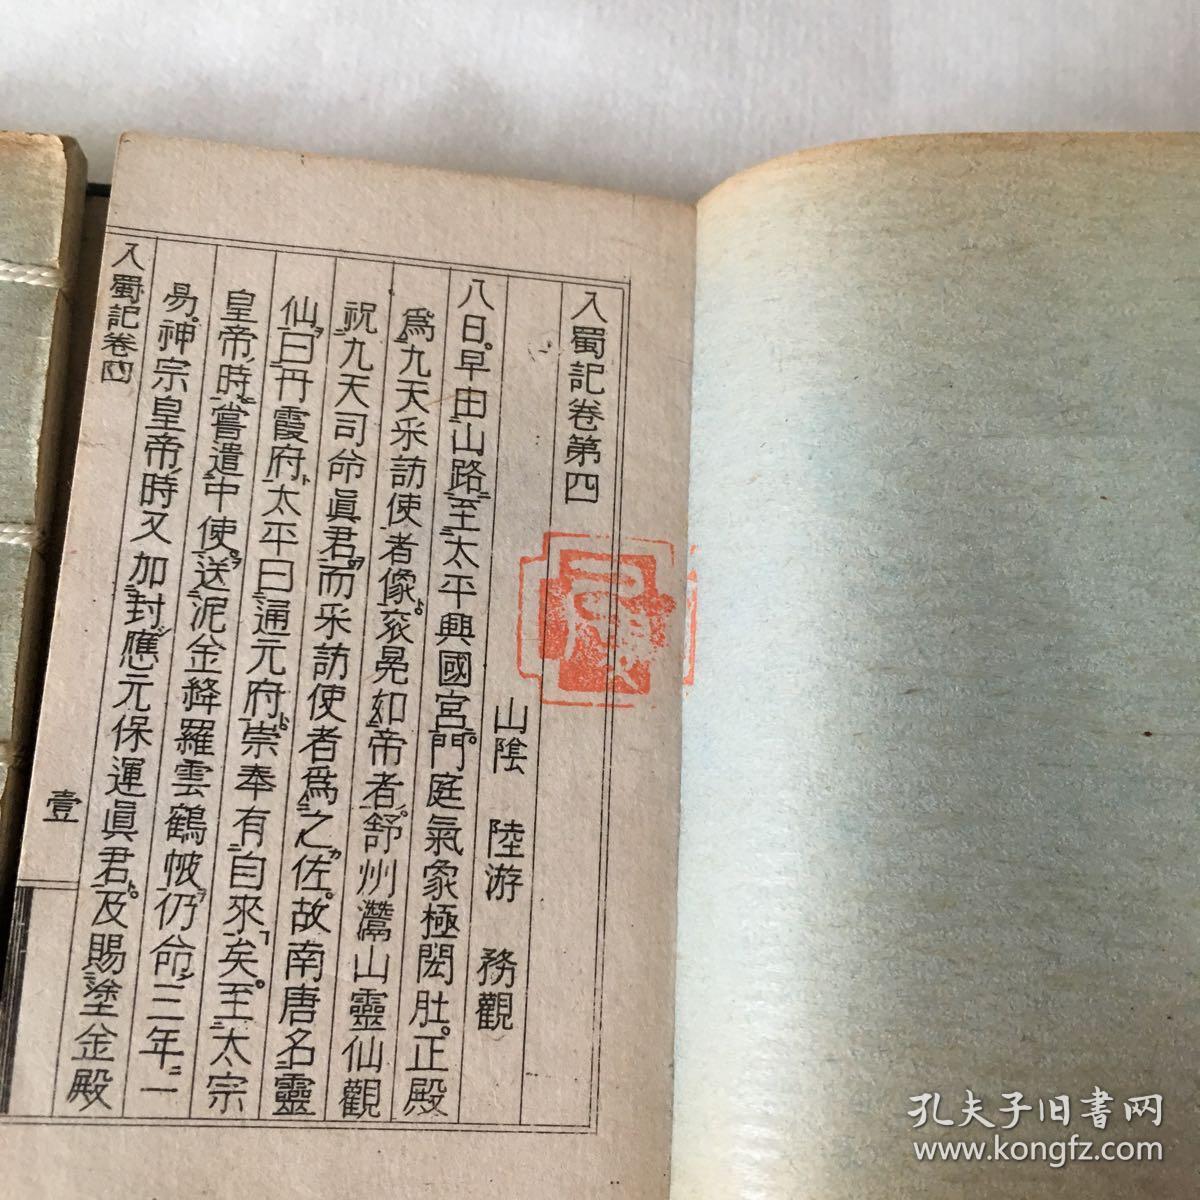 入蜀記卷第四
山陰 陸游 務觀
八日。早由山路至太平興國宮。門庭氣象極閎壯。正殿
爲九天采訪使者像。袞冕如帝者。舒州灊山靈仙觀
祝九天司命眞君。而采訪使者爲之佐。故南唐名靈
仙曰丹霞府。太平曰通元府。崇奉有自來矣。至太宗
皇帝時。嘗遣中使。送泥金絳羅雲鶴帔。仍命三年一
易。神宗皇帝時。又加封應元保運眞君。及賜塗金殿
入蜀記卷四
壹
孔夫子旧書网
www.kongfz.com